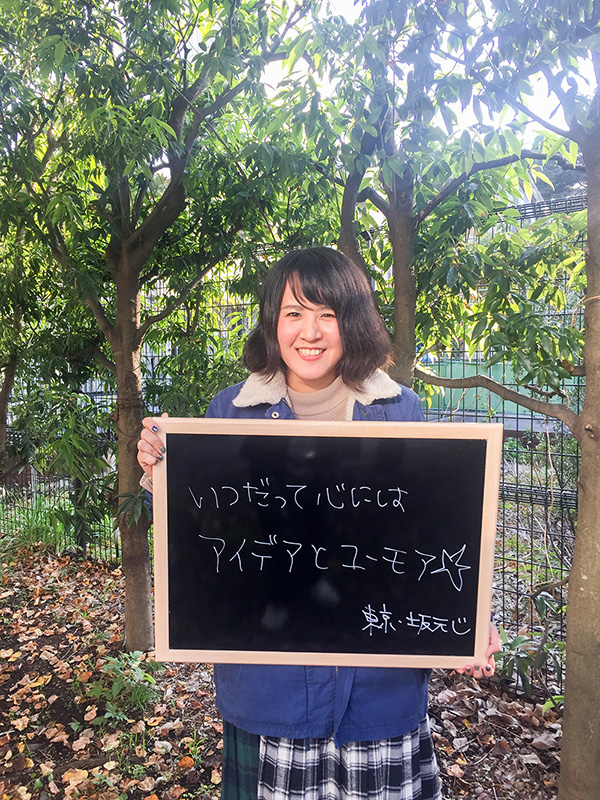 いつだって心には
アイデアとユーモア☆
東京・坂元